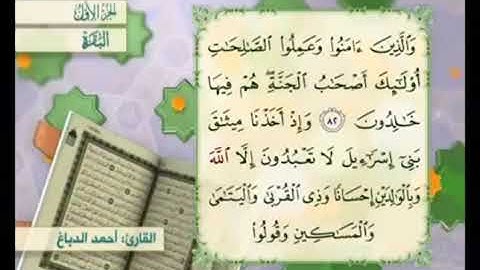 الجزء الأول
البقرة
وَالَّذِينَ ءَامَنُوا وَعَمِلُوا الصَّـٰلِحَـٰتِ
أُوْلَـٰٓئِكَ أَصْحَـٰبُ الْجَنَّةِ ۖ هُمْ فِيهَا
خَـٰلِدُونَ ٨٢ وَإِذْ أَخَذْنَا مِيثَـٰقَ
بَنِىٓ إِسْرَٰٓءِيلَ لَا تَعْبُدُونَ إِلَّا اللَّهَ
وَبِالْوَٰلِدَيْنِ إِحْسَانًا وَذِى الْقُرْبَىٰ وَالْيَتَـٰمَىٰ
وَالْمَسَـٰكِينِ وَقُولُوا
القارئ: أحمد الدباغ